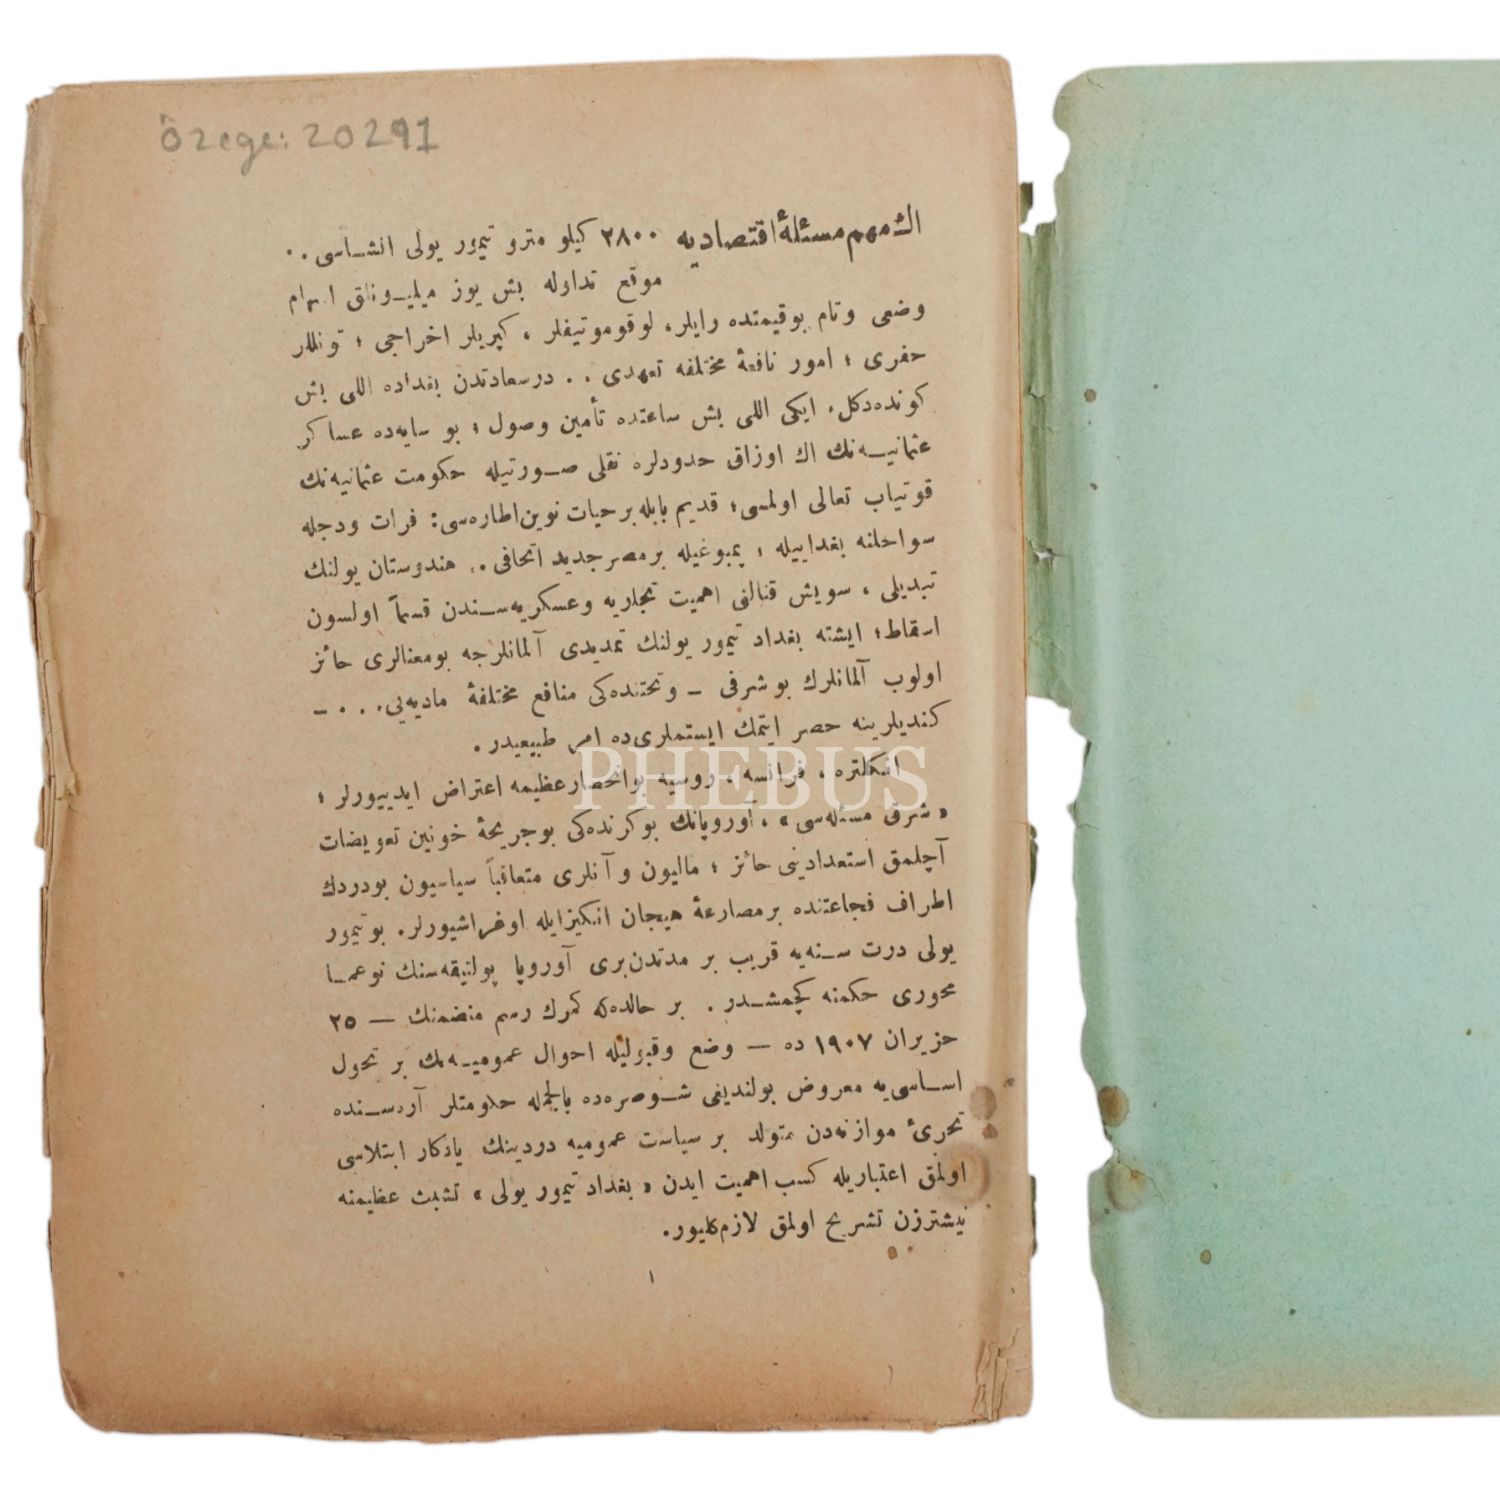 Özege: 20291
اڭ مهم مسئلهٔ اقتصاديه ٢٨٠٠ كيلو مترو تيمور يولى انشاسى . .
موقع تداوله بش يوز ميليونلق اسهام
وضعى وتام بوقيمتده رايلر، لوقوموتيفلر ، كپريلر اخراجى ؛ تونللر
حفرى ؛ امور نافعهٔ مختلفه تعهدى . . درسعادتدن بغداده اللى بش
كونده‌دكل. ايكى اللى بش ساعتده تأمين وصول ؛ بو سايه‌ده عساكر
عثمانيه‌نك اك اوزاق حدودلره نقلى صورتيله حكومت عثمانيه‌نك
قوتياب تعالى اولمسى؛ قديم بابله برحيات نوين اطاره‌سى: فرات ودجله
سواحلنه بغداييله ، پمبوغيله برمصر جديد اتحافى . . هندوستان يولنك
تبديلى ، سويش قنالنى اهميت تجاريه وعسكريه‌سندن قسماً اولسون
اسقاط؛ ايشته بغداد تيمور يولنك تمديدى آلمانلرجه بومعنالرى حائز
اولوب آلمانلرك بو شرفى - وتحتنده‌كى منافع مختلفهٔ ماديه‌يى. . . -
كنديلرينه حصر ايتمك ايستملرى‌ده امر طبيعيدر .
انكلتره ، فرانسه ، روسيه بوانحصار عظيمه اعتراض ايدييورلر ؛
« شرق مسئله‌سى » ، آوروپانك بو كرنده‌كى بوجريحهٔ خونين تعويضات
آچلمق استعدادينى حائز ؛ ماليون و آنلرى متعاقباً سياسيون بودردك
اطراف فجاعتنده برمصارعهٔ هيجان انكيزايله اوغراشيورلر. بوتيمور
يولى درت سنه‌يه قريب بر مدتدن‌برى آوروپا پولتيقه‌سنك نوعما
محورى حكمنه كچمشدر . بر حالده‌كه كمرك رسم منضمنك — ٢٥
حزيران ١٩٠٧ ده — وضع وقبوليله احوال عموميه‌نك بر تحول
اساسى‌يه معروض بولنديغى شوصره‌ده بالجمله حكومتلر آره‌سنده
تحرىٔ موازنه‌دن متولد بر سياست عموميه دردينك يادكار ابتلاسى
اولمق اعتباريله كسب اهميت ايدن « بغداد تيمور يولى » تشبث عظيمنه
نيشترزن تشريح اولمق لازم‌كليور.
١
PHEBUS